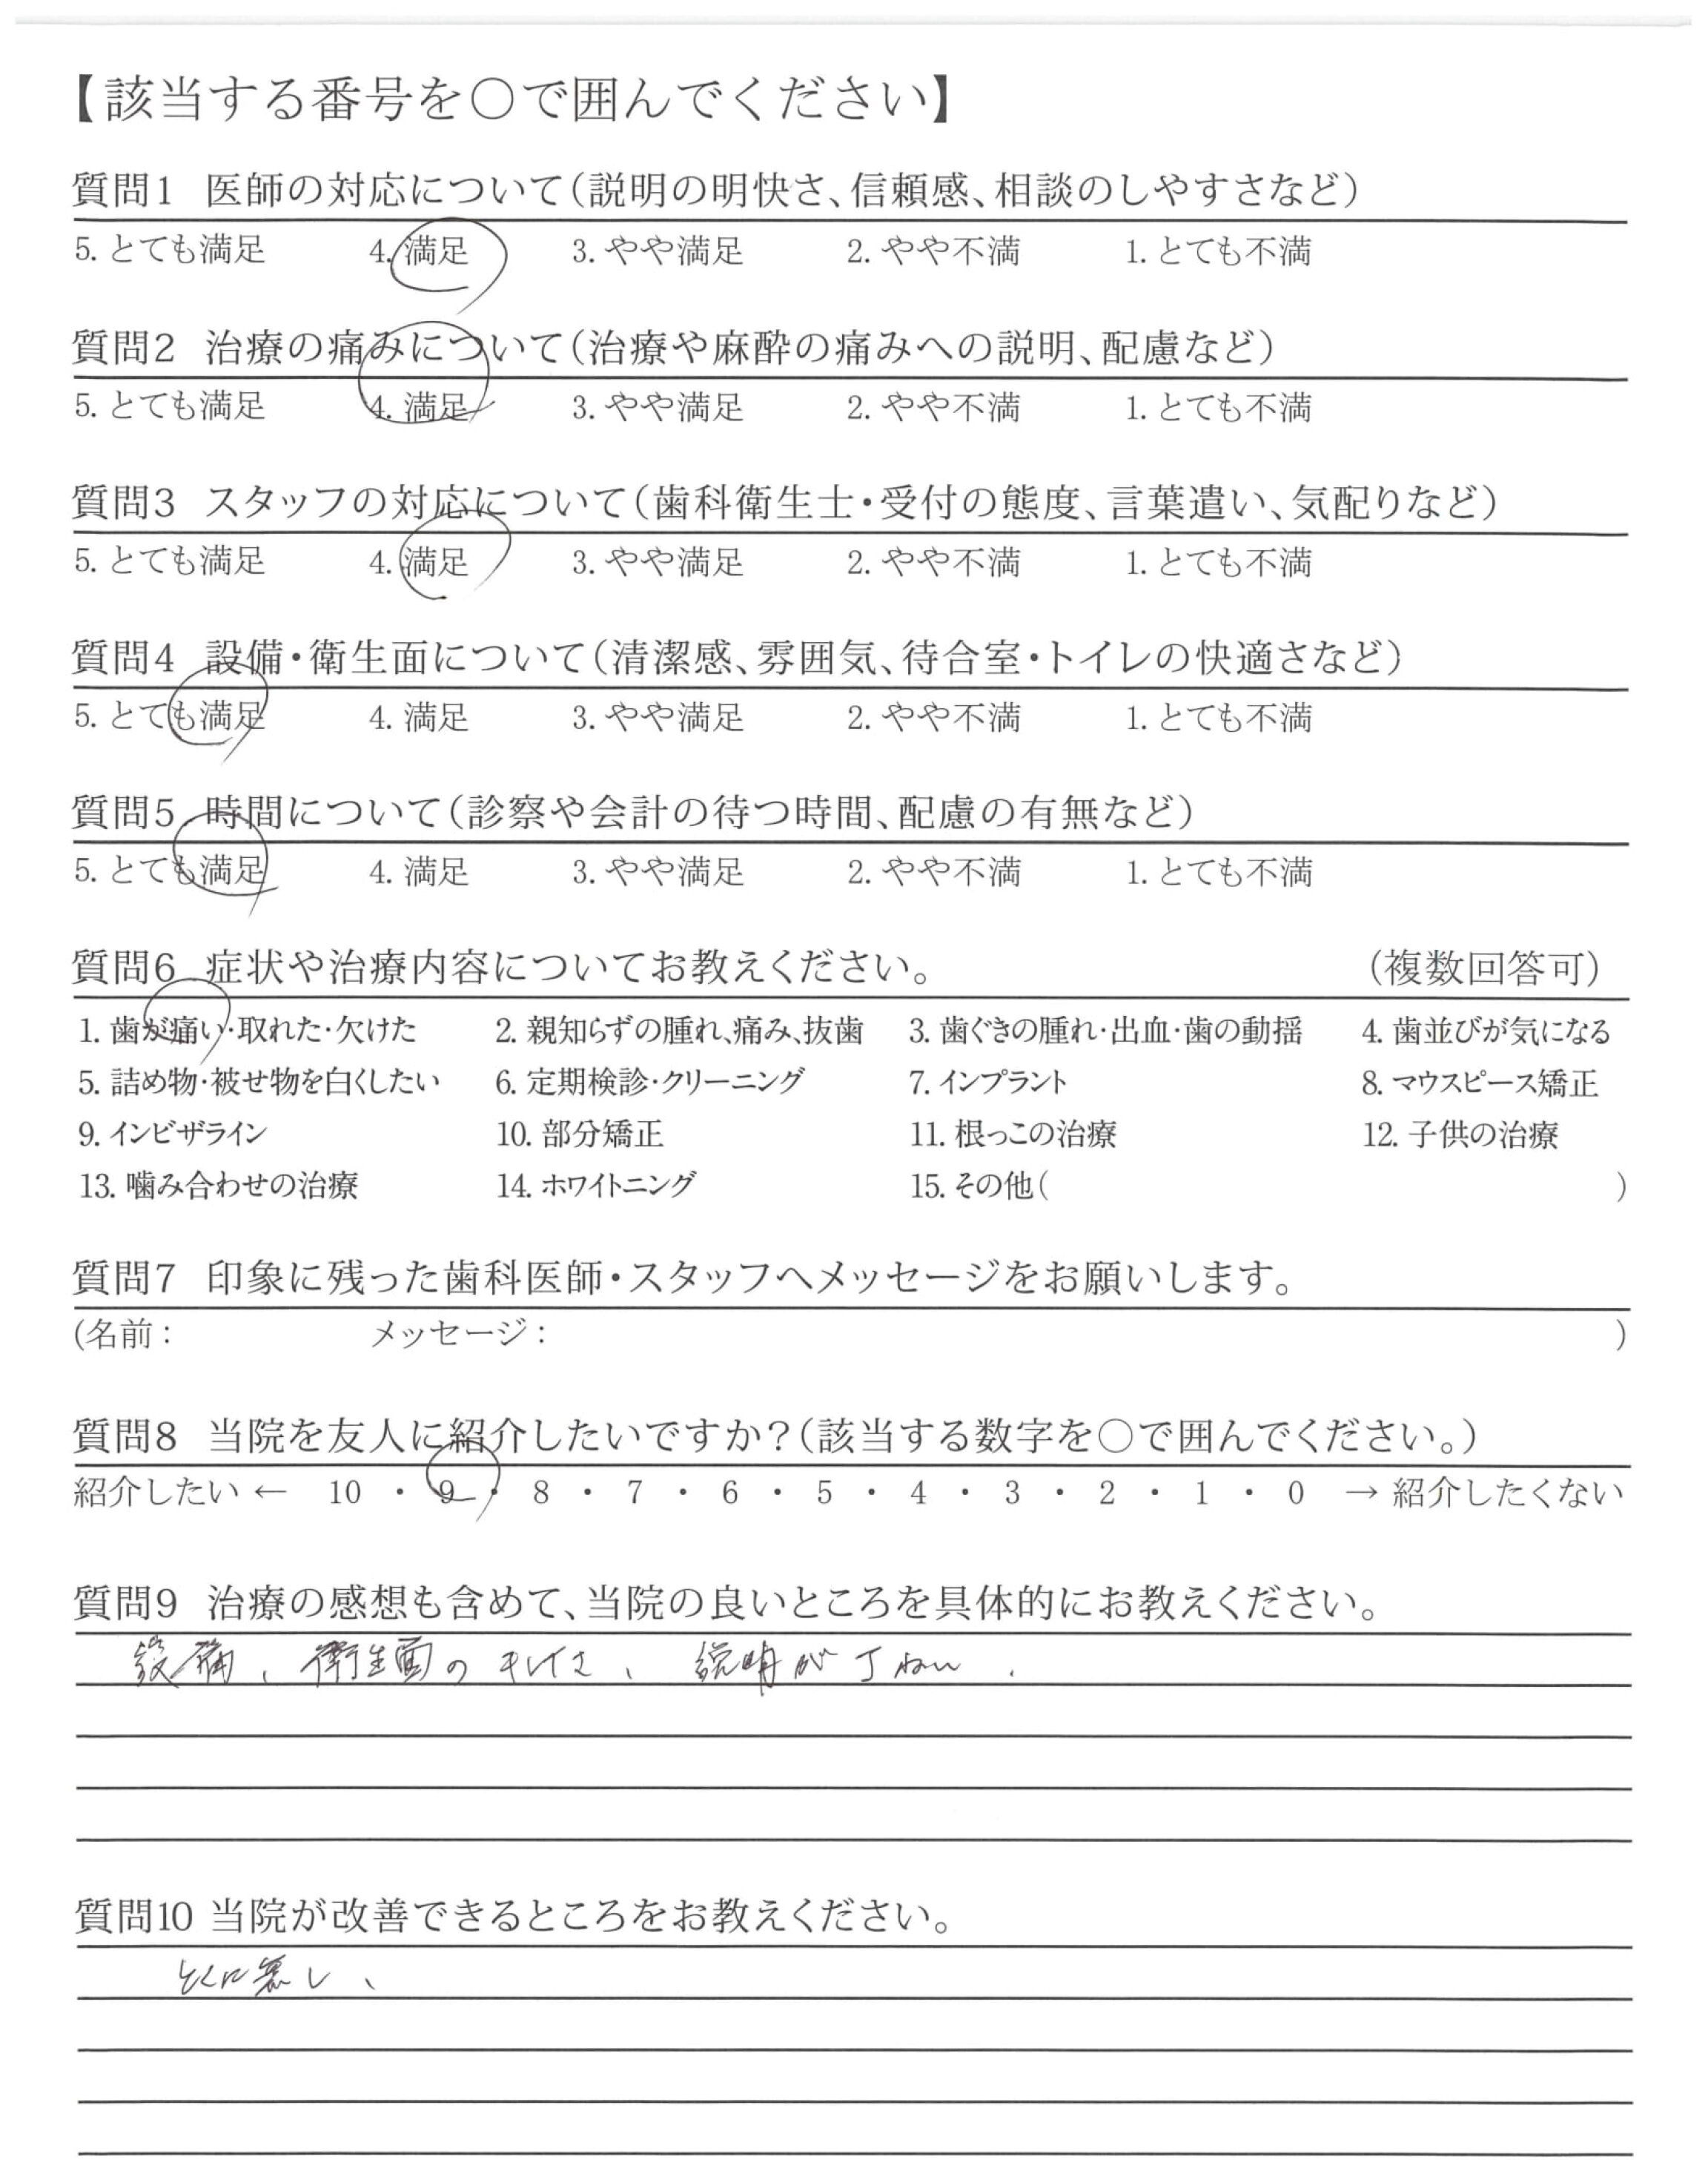 【該当する番号を○で囲んでください】
質問1 医師の対応について(説明の明快さ、信頼感、相談のしやすさなど)
5. とても満足 4. 満足 3. やや満足 2. やや不満 1. とても不満
質問2 治療の痛みについて(治療や麻酔の痛みへの説明、配慮など)
5. とても満足 4. 満足 3. やや満足 2. やや不満 1. とても不満
質問3 スタッフの対応について(歯科衛生士・受付の態度、言葉遣い、気配りなど)
5. とても満足 4. 満足 3. やや満足 2. やや不満 1. とても不満
質問4 設備・衛生面について(清潔感、雰囲気、待合室・トイレの快適さなど)
5. とても満足 4. 満足 3. やや満足 2. やや不満 1. とても不満
質問5 時間について(診察や会計の待つ時間、配慮の有無など)
5. とても満足 4. 満足 3. やや満足 2. やや不満 1. とても不満
質問6 症状や治療内容についてお教えください。 (複数回答可)
1. 歯が痛い・取れた・欠けた 2. 親知らずの腫れ、痛み、抜歯 3. 歯ぐきの腫れ・出血・歯の動揺 4. 歯並びが気になる
5. 詰め物・被せ物を白くしたい 6. 定期検診・クリーニング 7. インプラント 8. マウスピース矯正
9. インビザライン 10. 部分矯正 11. 根っこの治療 12. 子供の治療
13. 噛み合わせの治療 14. ホワイトニング 15. その他( )
質問7 印象に残った歯科医師・スタッフへメッセージをお願いします。
(名前: メッセージ: )
質問8 当院を友人に紹介したいですか?(該当する数字を○で囲んでください。)
紹介したい ← 10 ・ 9 ・ 8 ・ 7 ・ 6 ・ 5 ・ 4 ・ 3 ・ 2 ・ 1 ・ 0 → 紹介したくない
質問9 治療の感想も含めて、当院の良いところを具体的にお教えください。
設備、衛生面のキレイさ、説明が丁ねい.
質問10 当院が改善できるところをお教えください。
とくに無し、